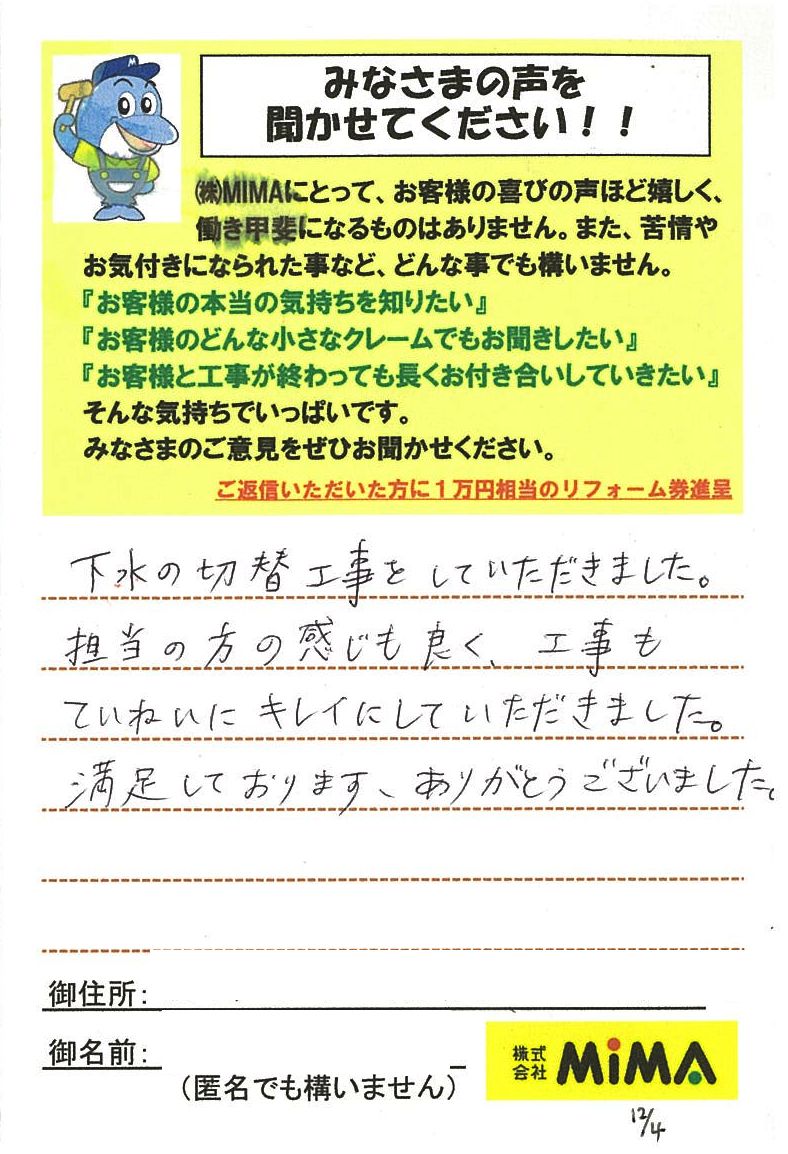 みなさまの声を
聞かせてください！！
㈱MIMAにとって、お客様の喜びの声ほど嬉しく、
働き甲斐になるものはありません。また、苦情や
お気付きになられた事など、どんな事でも構いません。
『お客様の本当の気持ちを知りたい』
『お客様のどんな小さなクレームでもお聞きしたい』
『お客様と工事が終わっても長くお付き合いしていきたい』
そんな気持ちでいっぱいです。
みなさまのご意見をぜひお聞かせください。
ご返信いただいた方に１万円相当のリフォーム券進呈
下水の切替工事をしていただきました。
担当の方の感じも良く、工事も
ていねいにキレイにしていただきました。
満足しております、ありがとうございました。
御住所：
御名前：
（匿名でも構いません）
株式会社 MiMA
12/4